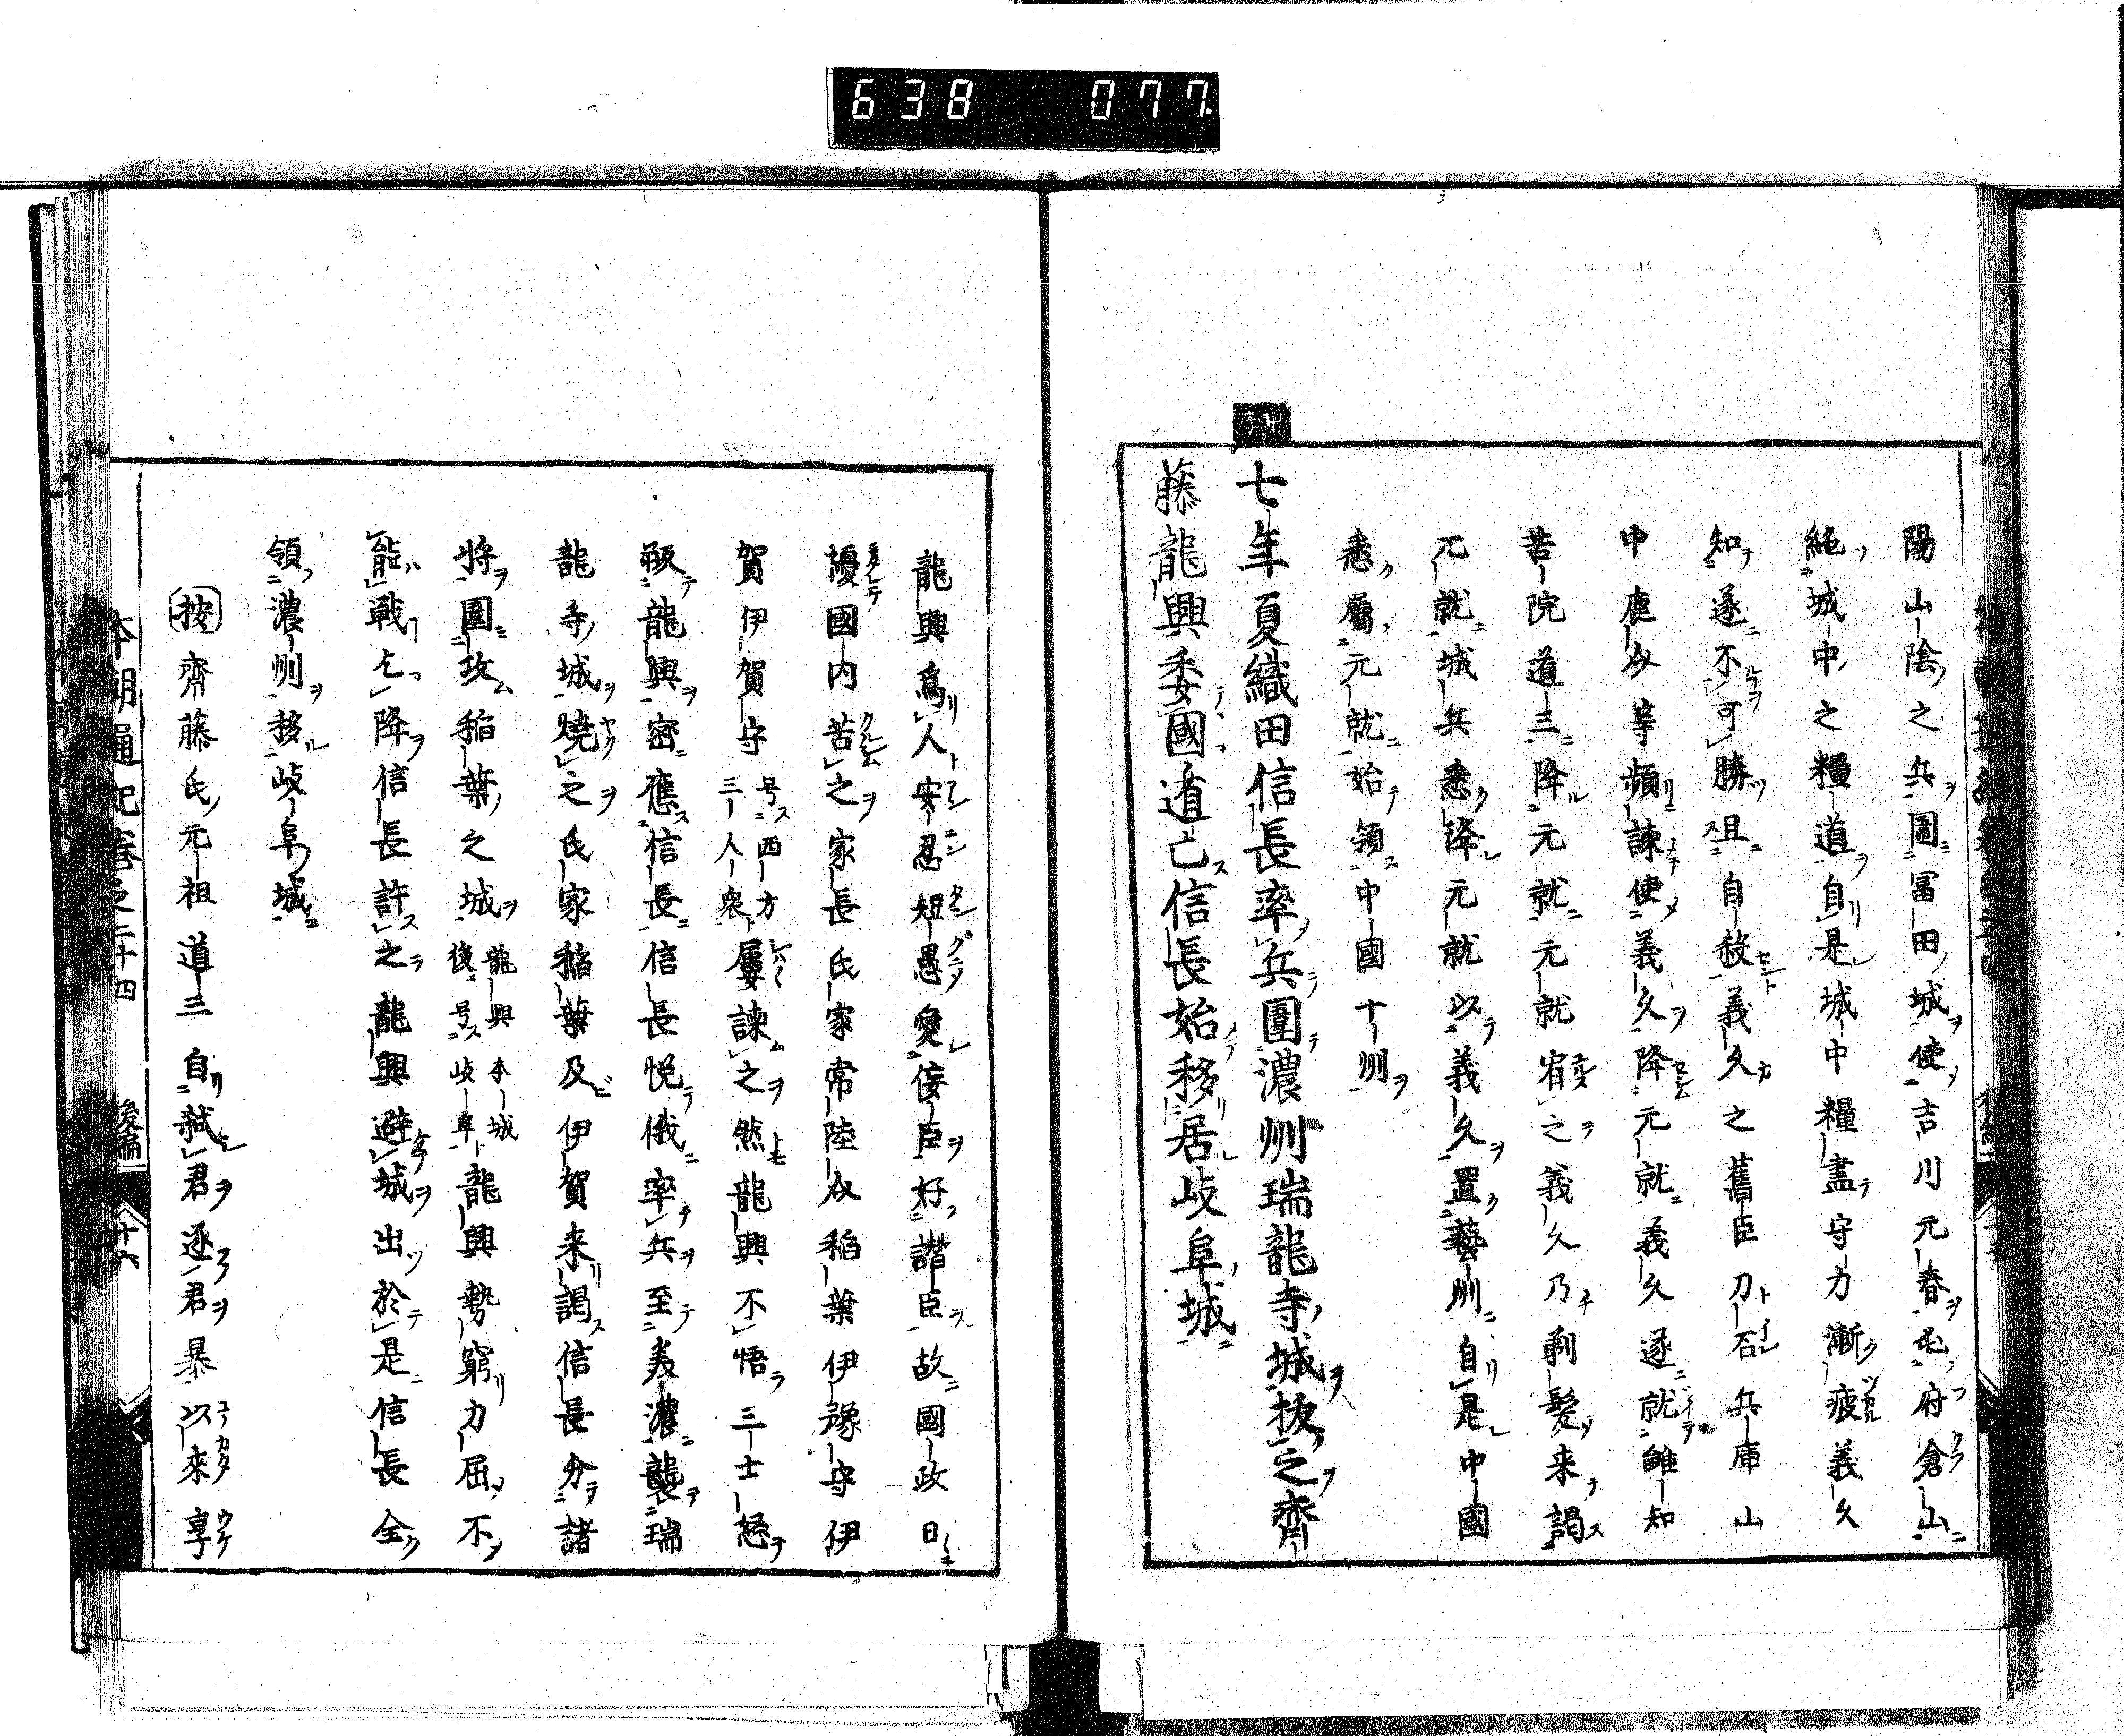 638 077
陽山陰之兵圍冨田城使吉川元春屯府倉山
絶城中之糧道自是城中糧盡守力漸疲義久
知遂不可勝且自殺義久之舊臣刀石兵庫山
中鹿助等頻諫使義久降元就義久遂就雖知
苦院道三降元就元就宥之義久乃剃髮来謁
元就城兵悉降元就以義久置藝州自是中國
悉屬元就始領中國十州
七年夏織田信長率兵圍濃州瑞龍寺城抜之齊
藤龍興委國遁亡信長始移居岐阜城
龍興爲人安忍短愚愛侫臣好讃臣故國政日
擾國内苦之家長氏家常陸介稲葉伊豫守伊
賀伊賀守号西方三人衆屢諫之然龍興不悟三士怒
叛龍興密應信長信長悦俄率兵至美濃襲瑞
龍寺城燒之氏家稲葉及伊賀来謁信長分諸
将圍攻稲葉之城龍興本城後号岐阜龍興勢窮力屈不
能戰乞降信長許之龍興避城出於是信長全
領濃州移岐阜城
按齊藤氏元祖道三自弑君逐君暴以來享
本朝通紀巻之二十四 後編 十六